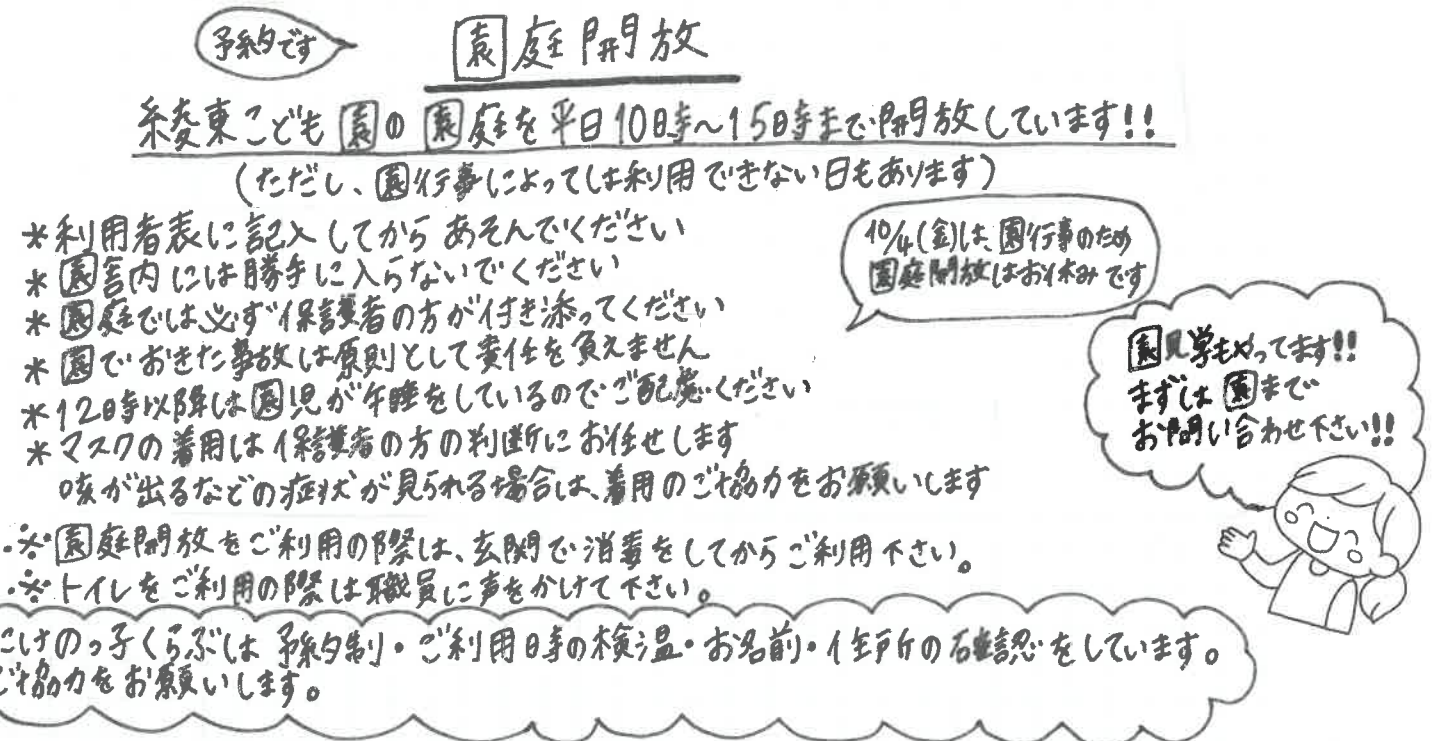 予約です
園庭開放
綾東こども園の園庭を平日10時～15時まで開放しています!!
(ただし、園行事によっては利用できない日もあります)
*利用者表に記入してからあそんでください
*園舎内には勝手に入らないでください
*園庭では必ず保護者の方が付き添ってください
*園でおきた事故は原則として責任を負えません
*12時以降は園児が午睡をしているのでご配慮ください
*マスクの着用は保護者の方の判断にお任せします
咳が出るなどの症状が見られる場合は、着用のご協力をお願いします
10/4(金)は、園行事のため
園庭開放はお休みです
園見学もやってます!!
まずは園まで
お問い合わせ下さい!!
※園庭開放をご利用の際は、玄関で消毒をしてからご利用下さい。
※トイレをご利用の際は職員に声をかけて下さい。
けのっ子くらぶは予約制・ご利用時の検温・お名前・住所の確認をしています。
ご協力をお願いします。